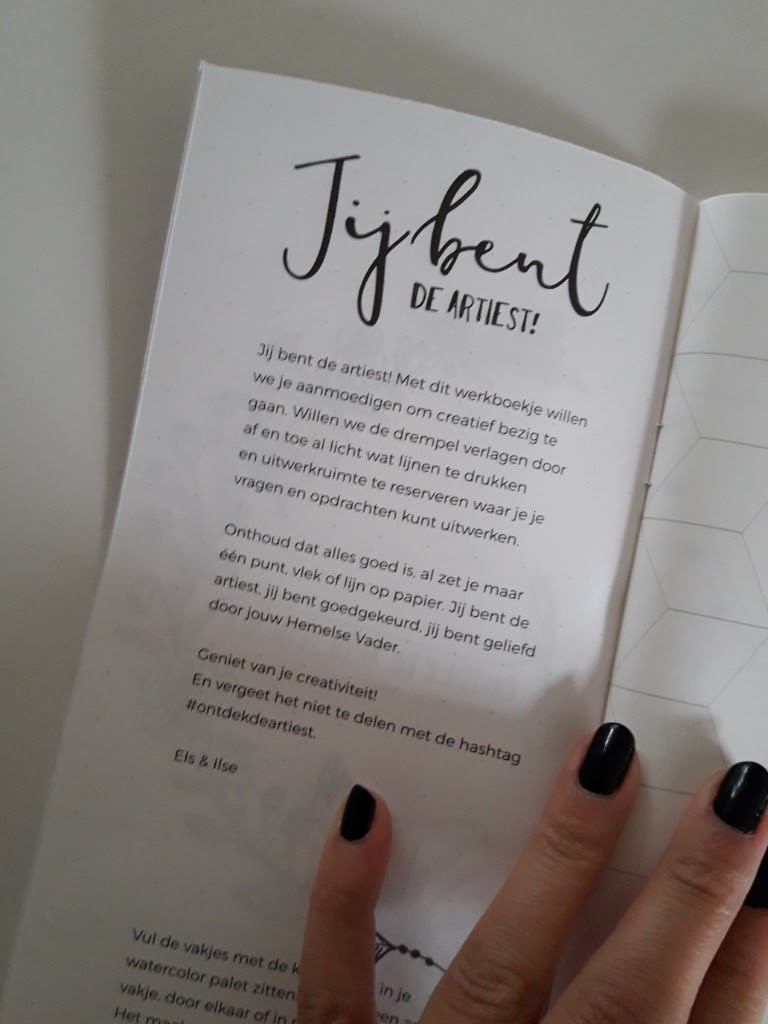 Jij bent
DE ARTIEST!
Jij bent de artiest! Met dit werkboekje willen
we je aanmoedigen om creatief bezig te
gaan. Willen we de drempel verlagen door
af en toe al licht wat lijnen te drukken
en uitwerkruimte te reserveren waar je je
vragen en opdrachten kunt uitwerken.
Onthoud dat alles goed is, al zet je maar
één punt, vlek of lijn op papier. Jij bent de
artiest, jij bent goedgekeurd, jij bent geliefd
door jouw Hemelse Vader.
Geniet van je creativiteit!
En vergeet het niet te delen met de hashtag
#ontdekdeartiest.
Els & Ilse
Vul de vakjes met de in je
watercolor palet zitten.
vakje, door elkaar of in
Het